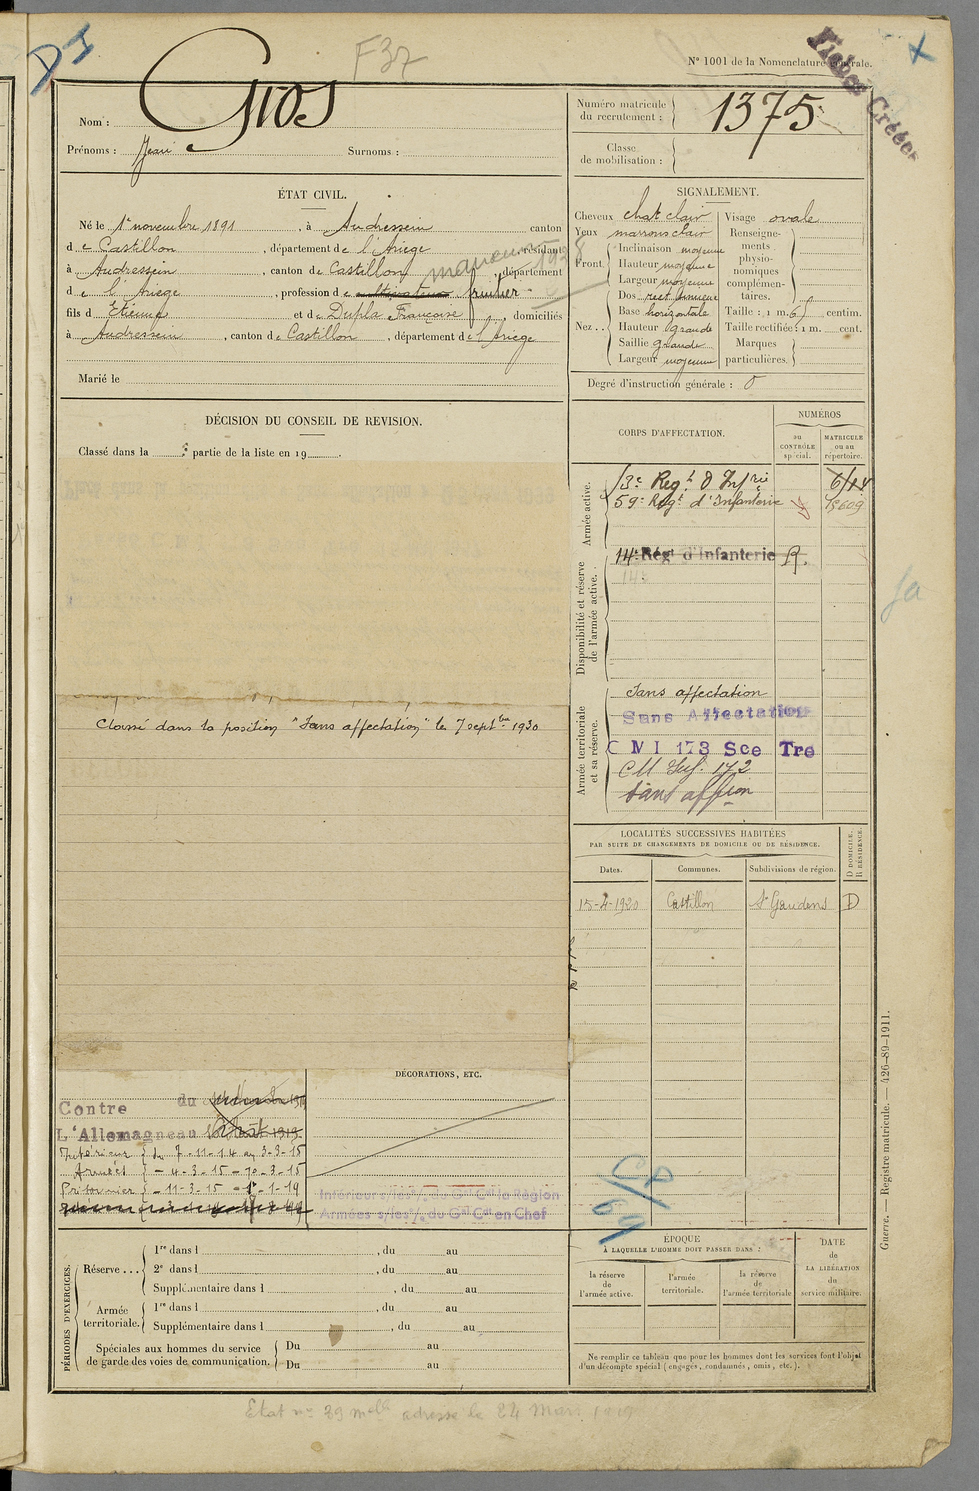 DJ
F37
N° 1001 de la Nomenclature générale.
Fiches Créées
Nom : Gros
Prénoms : Jean Surnoms :
Numéro matricule du recrutement : 1375
Classe de mobilisation :
ÉTAT CIVIL.
Né le 1er novembre 1891, à Audressein canton
de Castillon, département de l'Ariège, résidant
à Audressein, canton de Castillon, département
de l'Ariège, profession de cultivateur fruitier
fils d Etienne et de Dupla Françoise, domiciliés
à Audressein, canton de Castillon, département de l'Ariège
Marié le
SIGNALEMENT.
Cheveux chat clair
Yeux marrons clair
Front. Inclinaison moyenne
Hauteur moyenne
Largeur moyenne
Nez... Dos rect sinueux
Base horizontale
Hauteur grande
Saillie grande
Largeur moyenne
Visage ovale
Renseignements physionomiques complémentaires.
Taille : 1 m. 61 centim.
Taille rectifiée : 1 m. cent.
Marques particulières.
Degré d'instruction générale : 0
DÉCISION DU CONSEIL DE REVISION.
Classé dans la partie de la liste en 19 .
Classé dans la position "Sans affectation" le 7 septbre 1930
CORPS D'AFFECTATION.
NUMÉROS
au CONTRÔLE spécial.
MATRICULE ou au répertoire.
Armée active.
59e Regt d'Infanterie 15609
Disponibilité et réserve de l'armée active.
14e Régt d'Infanterie R.
Armée territoriale et sa réserve.
Sans affectation
Sans Affectation
C M I 173 Sce Tre
Sans affion
LOCALITÉS SUCCESSIVES HABITÉES
PAR SUITE DE CHANGEMENTS DE DOMICILE OU DE RÉSIDENCE.
Dates. Communes. Subdivisions de région. D DOMICILE. R RÉSIDENCE.
15-2-1920 Castillon St Gaudens D
Contre du
L'Allemagne au
Intérieur du 7-11-14 au 3-3-15
Armées - 4-3-15 - 10-3-15
Prisonnier - 11-3-15 - 1-1-19
DÉCORATIONS, ETC.
Intérieur s/les o/ du Gal Ct la Région
Armées s/les o/ du Gal Ct en Chef
CP/69
PÉRIODES D'EXERCICES.
Réserve... 1re dans l , du au
2e dans l , du au
Supplémentaire dans l , du au
Armée territoriale. 1re dans l , du au
Supplémentaire dans l , du au
Spéciales aux hommes du service de garde des voies de communication. Du au
Du au
ÉPOQUE
À LAQUELLE L'HOMME DOIT PASSER DANS :
la réserve de l'armée active.
l'armée territoriale.
la réserve de l'armée territoriale
DATE de LA LIBÉRATION du service militaire.
Ne remplir ce tableau que pour les hommes dont les services font l'objet
d'un décompte spécial (engagés, condamnés, omis, etc.).
Guerre. — Registre matricule. — 426-89-1911.